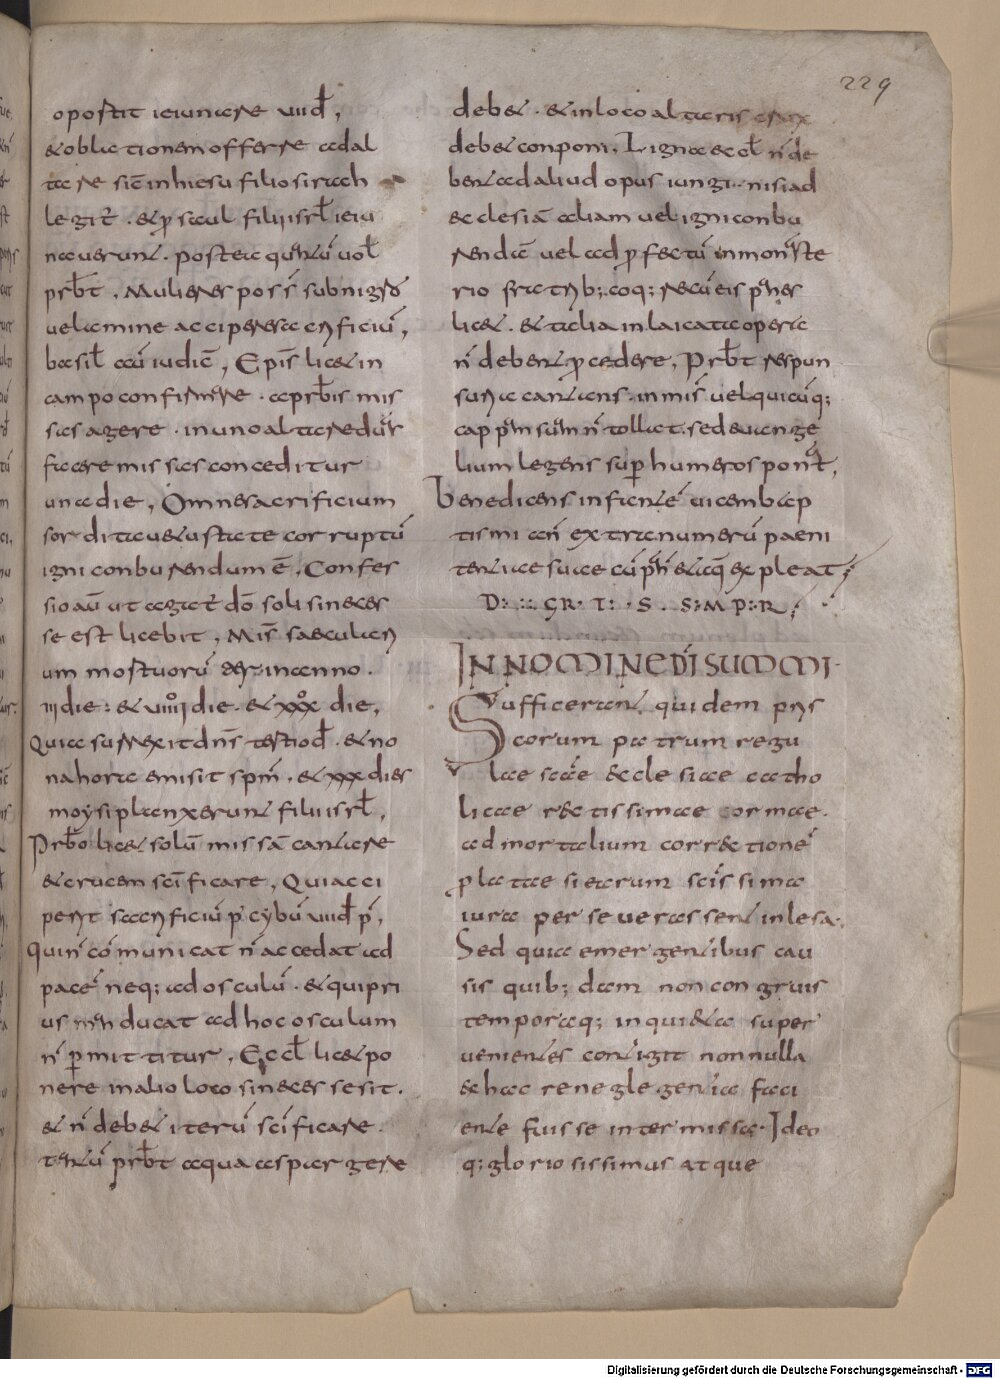 229
oportit ieiunare viid̄,
& oblationem offerre ad al
tare sic̄ in hiesu filio sirach
legit̄ . & ꝓ saul filii isrl̄ ieiu
naverunt . postea quantū vol̄
prb̄t , Mulieres pos s̄ sub nigro
velamine accipere sacrificiū ,
basil̄ aū iudic̄ , Epis̄ lic& in
campo confirmare . a prb̄is mis
sas agere . in uno altare duar̄
facere missas conceditur
una die , Omne sacrificium
sorditauetustate corruptū
igni conburendum ē . Confes
sio aū ut agat̄ dō soli si neces
se est licebit , Mis̄ saecularium
mostuorū ter in anno .
iii die : & viiii die . & xxx die ,
Quia surrexit dn̄s tertiod̄ . & no
na hora emisit spm̄ . & xxx dies
moysi planxerunt filii isrl̄ ,
Prb̄o lic& solū missā cantare
& crucem sc̄ificare , Qui acci
perit sacrificiū p̄ cybū viid̄ p̄ ,
Qui n̄ cōmunicat n̄ accedat ad
pacē neq; ad osculū . & qui pri
us manducat ad hoc osculum
n̄ permittitur , Eccl̄ lic& po
nere in alio loco si necesse sit .
& n̄ deb& iterū sc̄ificare .
tantū prb̄t aqua aspargere
deb& . & in loco altaris
deb& conponi . Ligna eccl̄ n̄ de
bent ad aliud opus iungi . nisi ad
ecclesiā aliam vel igni conbu
rendā vel ad ꝓfectū in monaste
rio fratrib; coq;
lic& . & talia in laicata opera
n̄ debent ꝓcedere , Prb̄t respon
suria cantans . in mis̄ vel quicūq;
cappam suam n̄ tollat . sed euange
lium legens super humeros ponat ,
Benedicens infantē vicem bap
tismi extra numerū paeni
tentiae suae
D: :: GR· I: · S · S:M P:R ;
IN NOMINE DI SUMMI·
Sufficerant quidem prys
corum patrum regu
lae scāe ecclesiae catho
licae rectissimae normae .
ad mortalium correctionē
platae si earum scīssima
iura perseverassent inlesa .
Sed quia emergentibus cau
sis quib; dam non congruis
temporaq; inquieta super
venientes contigit nonnulla
& haec reneglegentia faci
ente fuisse intermissa . Ideo
q; gloriosissimus atque
Digitalisierung gefördert durch die Deutsche Forschungsgemeinschaft - DFG